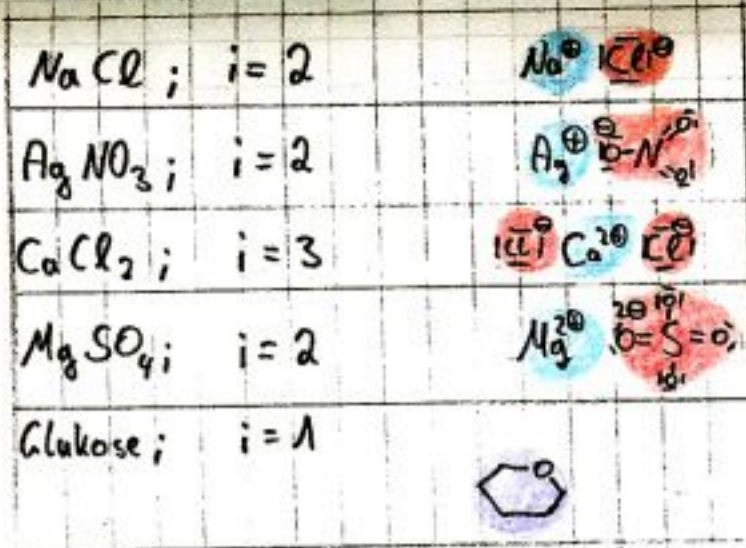 NaCl; i = 2 Na⊕ |Cl|⊖
AgNO₃; i = 2 Ag⊕ ⊖O-N O O
CaCl₂; i = 3 |Cl|⊖ Ca²⊕ |Cl|⊖
MgSO₄; i = 2 Mg²⊕ 2⊖ O O=S=O O
Glukose; i = 1 O